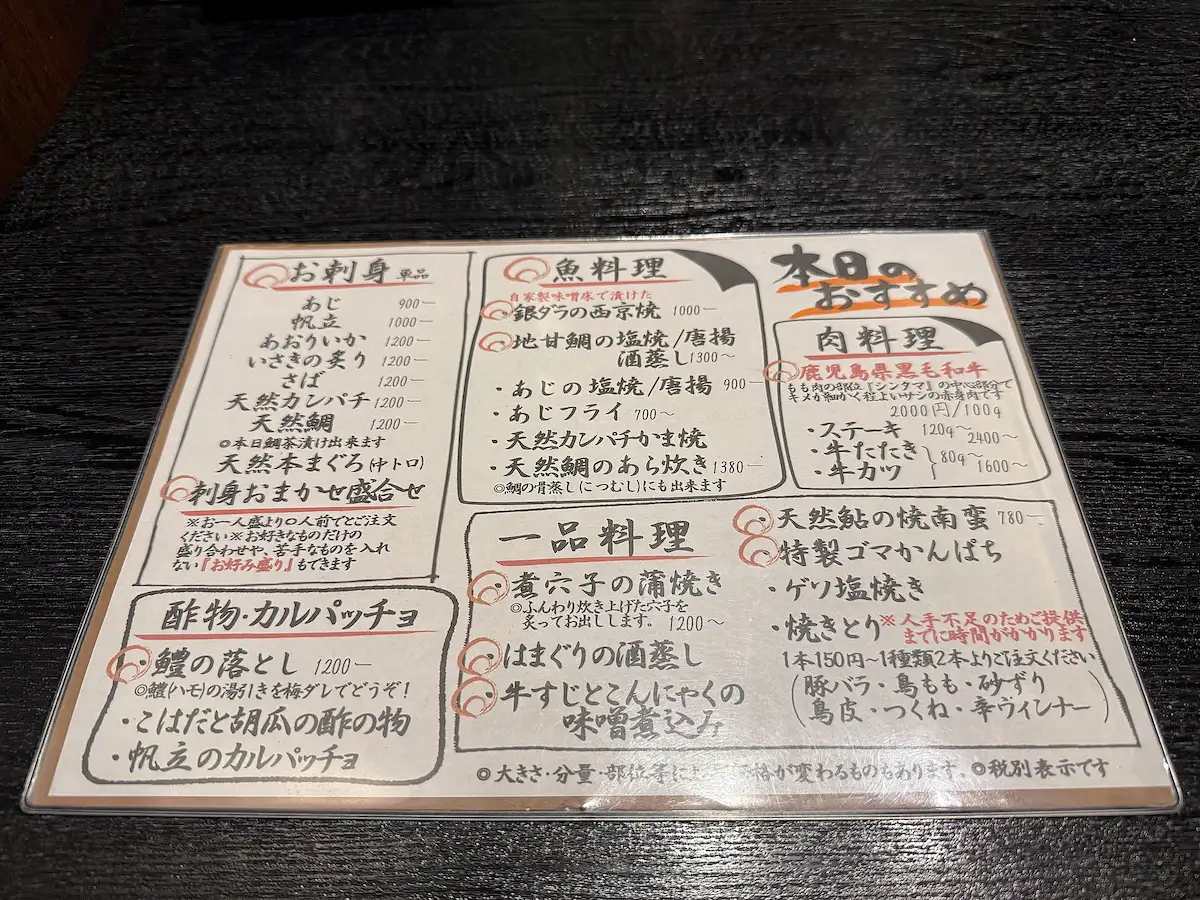 本日の
おすすめ
お刺身 単品
あじ 900ー
帆立 1000ー
あおりいか 1200ー
いさきの炙り 1200ー
さば 1200ー
天然カンパチ 1200ー
天然鯛 1200ー
◎本日鯛茶漬け出来ます
天然本まぐろ(中トロ)
刺身おまかせ盛合せ
※お一人盛より〇人前でとご注文
ください※お好きなものだけの
盛り合わせや、苦手なものを入れ
ない『お好み盛り』もできます
酢物・カルパッチョ
・鱧の落とし 1200ー
◎鱧(ハモ)の湯引きを梅ダレでどうぞ!
・こはだと胡瓜の酢の物
・帆立のカルパッチョ
魚料理
自家製味噌床で漬けた
・銀ダラの西京焼 1000ー
・地甘鯛の塩焼/唐揚
酒蒸し1300〜
・あじの塩焼/唐揚 900ー
・あじフライ 700〜
・天然カンパチかま焼
・天然鯛のあら炊き1380ー
◎鯛の骨蒸し(につむし)にも出来ます
肉料理
鹿児島県黒毛和牛
もも肉の部位『シンタマ』の中心部分で
キメが細かく程よいサシの赤身肉です
2000円/100g
・ステーキ 120g〜2400〜
・牛たたき
・牛カツ 80g〜1600〜
一品料理
・煮穴子の蒲焼き
◎ふんわり炊き上げた穴子を
炙ってお出しします。 1200〜
・はまぐりの酒蒸し
・牛すじとこんにゃくの
味噌煮込み
・天然鮎の焼南蛮 780ー
・特製ゴマかんぱち
・ゲソ塩焼き
・焼きとり※人手不足のためご提供
までに時間がかかります
1本150円〜1種類2本よりご注文ください
(豚バラ・鳥もも・砂ずり
鳥皮・つくね・辛ヴィレナー)
◎大きさ・分量・部位等によ 格が変わるものもあります。◎税別表示です